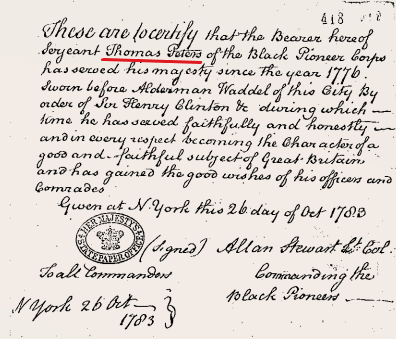 418
These are to certify that the Bearer hereof
Serjeant Thomas Peters of the Black Pioneer Corps
has served his majesty since the year 1776.
Sworn before Alderman Waddel of this City By
order of Sir Henry Clinton & during which
time he has served faithfully and honestly
and in every respect becoming the Character of a
good and faithful subject of Great Britain
and has gained the good wishes of his officers and
Comrades
Given at N York this 26 day of Oct 1783
HER MAJESTY'S STATE PAPER OFFICE
(Signed) Allan Stewart Lt Col
To all Commanders Commanding the
Black Pioneers
N York 26 Oct
1783